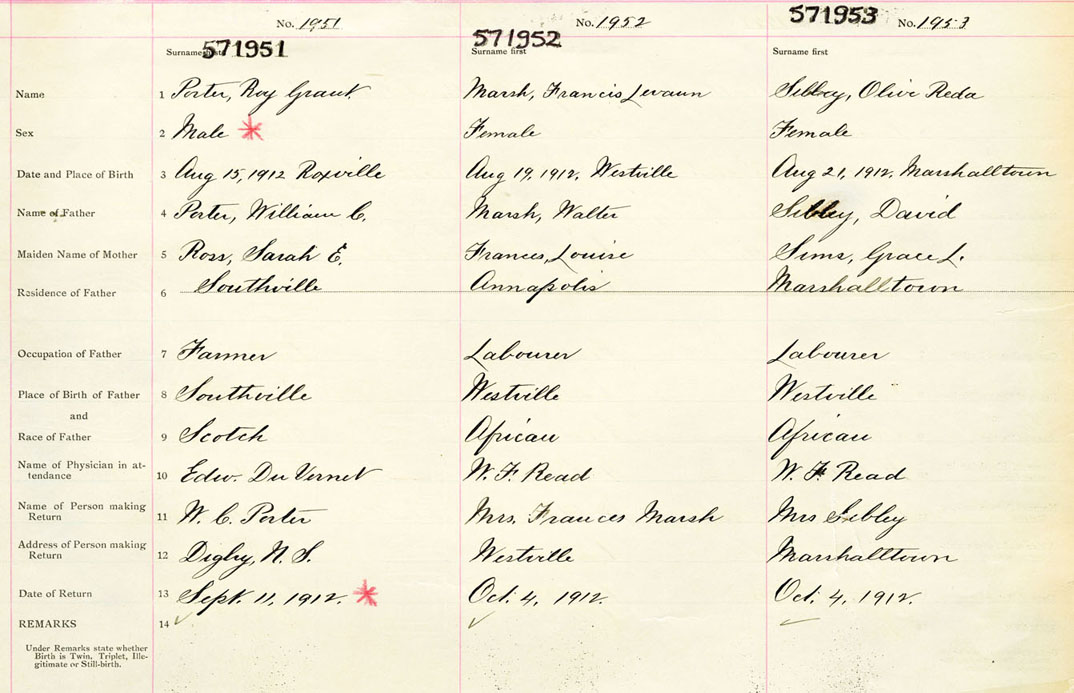 No. 1951 No. 1952 571953 No. 1953
Surname first 571951 571952 Surname first Surname first
Name 1 Porter, Roy Grant Marsh, Francis Levaun Sibley, Olive Reda
Sex 2 Male Female Female
Date and Place of Birth 3 Aug 15, 1912 Roxville Aug 19, 1912, Westville Aug 21, 1912, Marshalltown
Name of Father 4 Porter, William C. Marsh, Walter Sibley, David
Maiden Name of Mother 5 Ross, Sarah E. Frances, Louise Sims, Grace L.
Residence of Father 6 Southville Annapolis Marshalltown
Occupation of Father 7 Farmer Labourer Labourer
Place of Birth of Father 8 Southville Westville Westville
and
Race of Father 9 Scotch African African
Name of Physician in at-
tendance 10 Edw. Du Vernet W. F. Read W. F. Read
Name of Person making
Return 11 W. C. Porter Mrs. Frances Marsh Mrs Sibley
Address of Person making
Return 12 Digby, N. S. Westville Marshalltown
Date of Return 13 Sept. 11, 1912. Oct. 4, 1912. Oct. 4, 1912.
REMARKS 14
Under Remarks state whether
Birth is Twin, Triplet, Ille-
gitimate or Still-birth.